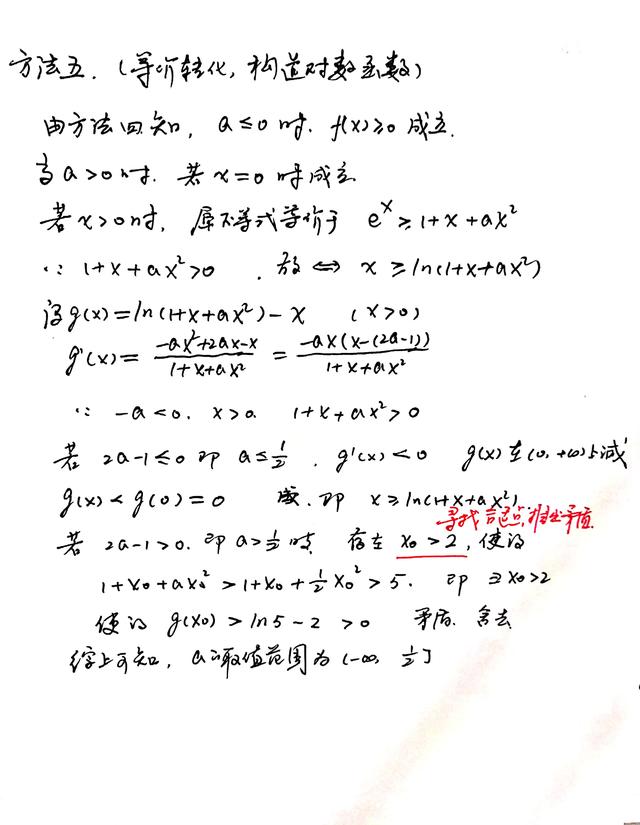 方法五.(等价转化,构造对数函数)
由方法四知, a≤0时. f(x)≥0 成立.
当a>0时. 若x=0时成立
若x>0时, 原不等式等价于 e^x≥1+x+ax²
∵ 1+x+ax²>0 . 故⇔ x≥ln(1+x+ax²)
设g(x)=ln(1+x+ax²)-x (x>0)
g'(x)= (-ax²+2ax-x)/(1+x+ax²) = (-ax(x-(2a-1)))/(1+x+ax²)
∵ -a<0. x>0. 1+x+ax²>0
若 2a-1≤0 即 a≤1/2 . g'(x)<0 g(x)在(0,+∞)上减
g(x)<g(0)=0 成.即 x≥ln(1+x+ax²).
寻找 点,推出矛盾.
若 2a-1>0.即a>1/2时 存在 x₀>2,使得
1+x₀+ax₀²>1+x₀+1/2x₀²>5. 即∃x₀>2
使得 g(x₀)>ln5-2>0 矛盾.舍去
综上可知, a的取值范围为(-∞, 1/2]